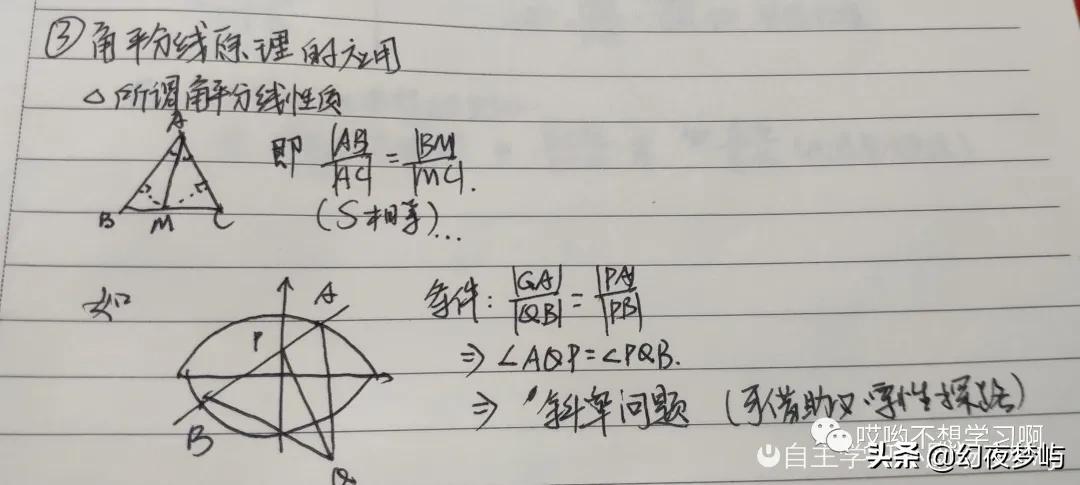 ③角平分线原理的应用
△所谓角平分线性质
A
B M C
即 |AB|/|AC| = |BM|/|MC|.
(S相等)...
如
A
P
B
Q
条件: |QA|/|QB| = |PA|/|PB|
⇒ ∠AQP=∠PQB.
⇒ 斜率问题 (可借助必要性探路)
哎哟不想学习啊
自主学
头条 @幻夜梦屿